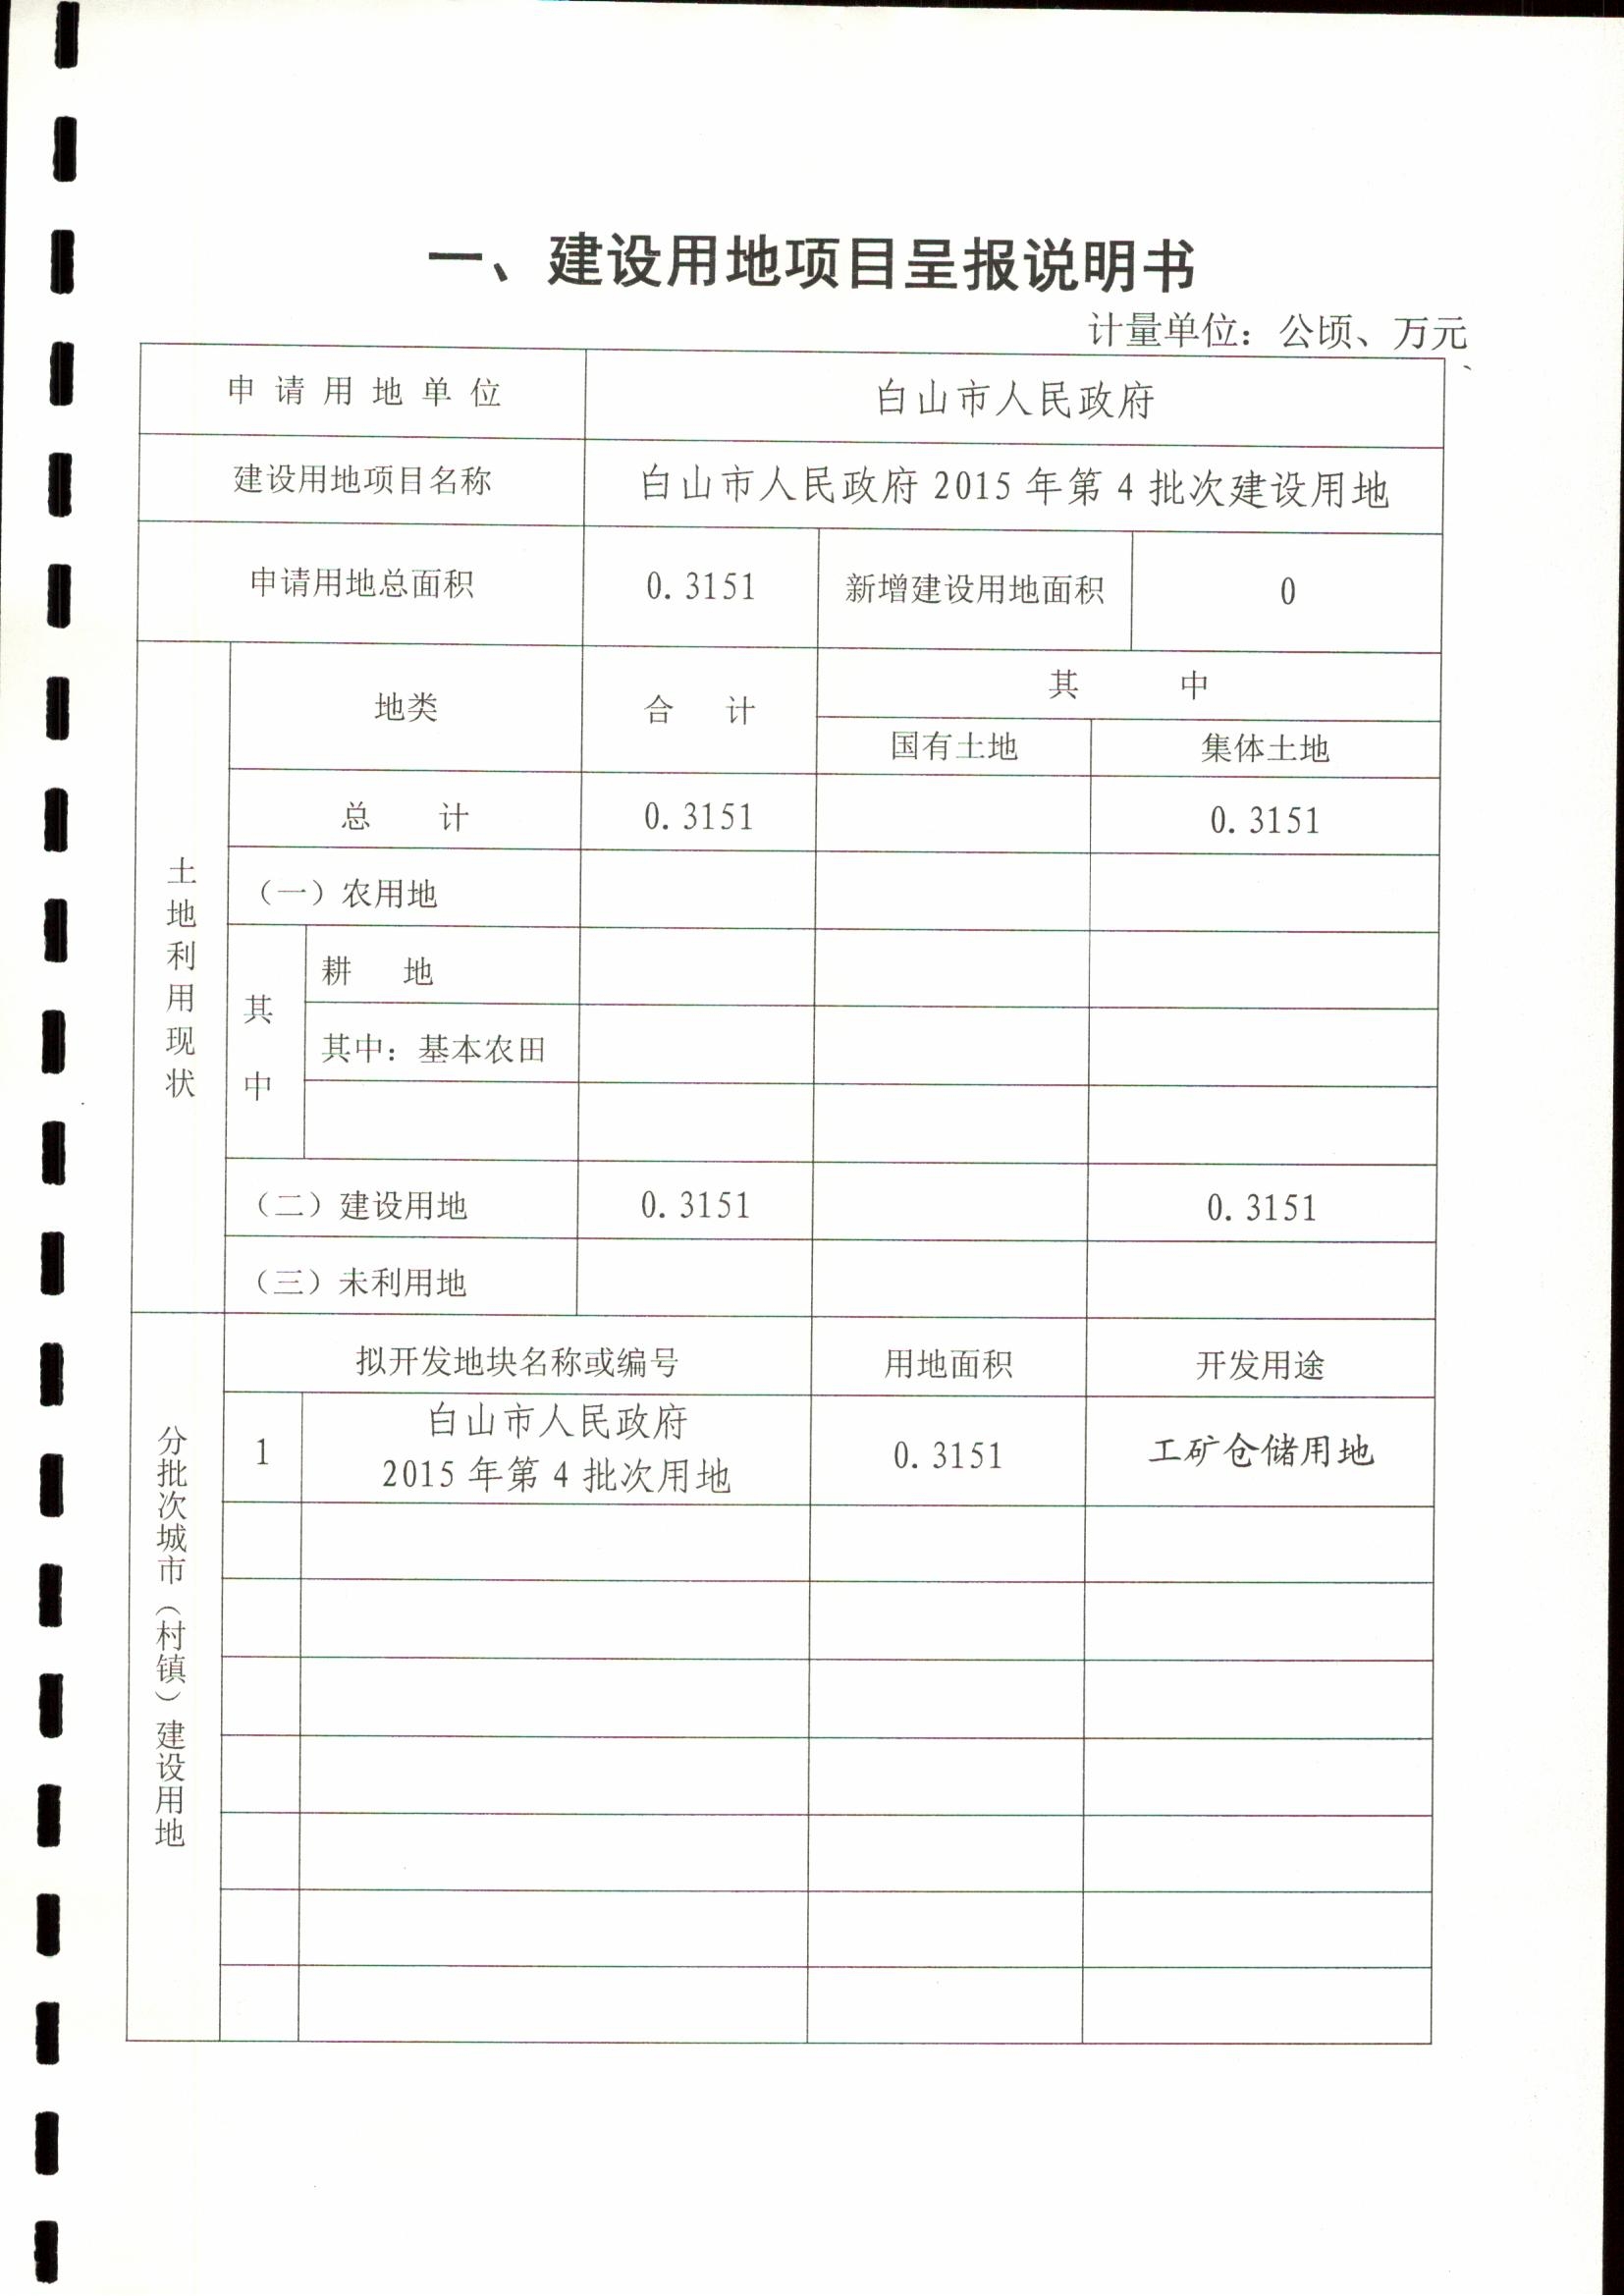 一、建设用地项目呈报说明书
计量单位：公顷、万元
申请用地单位 白山市人民政府
建设用地项目名称 白山市人民政府2015年第4批次建设用地
申请用地总面积 0.3151 新增建设用地面积 0
土地利用现状
地类 合计 其中
国有土地 集体土地
总计 0.3151 0.3151
（一）农用地
其中
耕地
其中：基本农田
（二）建设用地 0.3151 0.3151
（三）未利用地
分批次城市（村镇）建设用地
拟开发地块名称或编号 用地面积 开发用途
1 白山市人民政府
2015年第4批次用地 0.3151 工矿仓储用地